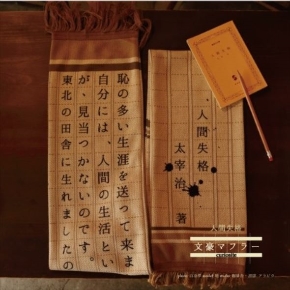 恥の多い生涯を送って来ま
自分には、人間の生活とい
が、見当つかないのです。
東北の田舎に生れましたの
人間失格
太宰治 著
人間失格
文豪マフラー
curiosite